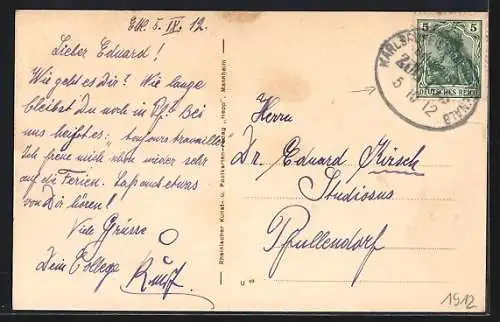 5. IV. 12.
Lieber Eduard!
Wie geht es Dir? Wie lange
bleibst Du noch in Bei
uns heißt es: "toujours travailler"
Ich freue mich aber wieder sehr
auf die Ferien. Laß mal etwas
von Dir hören!
Viele Grüsse
Dein College
Rumpf
Rheinischer Kunst- u. Postkartenverlag „Hepp“, Mannheim
U
5
DEUTSCHES REICH
5
12
Herrn
Dr. Eduard Kirsch
Studiosus
Pfullendorf
1912